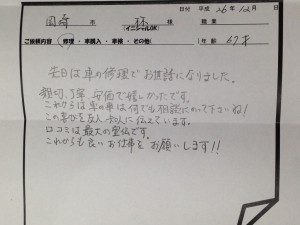 日付 平成 26年 12月 日
岡崎 市 林 様 イニシャルOK 職業
ご依頼内容 修理・車購入・車検・その他( ) 年齢 67才
先日は車の修理でお世話になりました。
親切、丁寧、安価で嬉しかったです。
これからは車の事は何でも相談にのって下さいね!
この喜びを友人・知人に伝えています。
口コミは最大の宣伝です。
これからも良いお仕事をお願いします!!